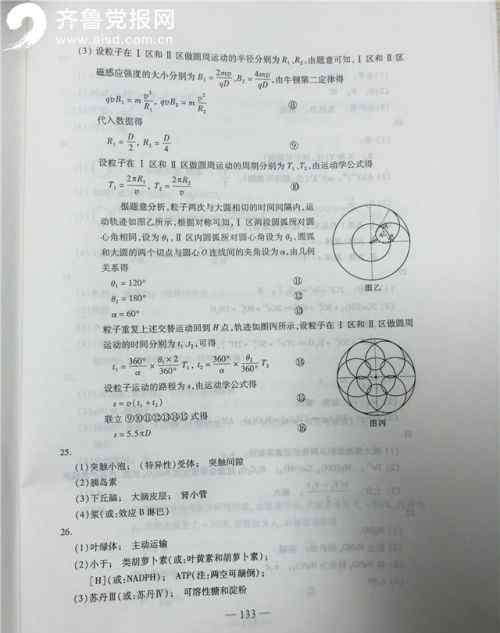 齐鲁党报网
dangbao.sina.com.cn
(3) 设粒子在Ⅰ区和Ⅱ区做圆周运动的半径分别为R₁、R₂,由题意可知,Ⅰ区和Ⅱ区
磁感应强度的大小分别为B₁=2mv/qD、B₂=4mv/qD,由牛顿第二定律得
qvB₁=m v²/R₁, qvB₂=m v²/R₂ ⑧
代入数据得
R₁=D/2, R₂=D/4 ⑨
设粒子在Ⅰ区和Ⅱ区做圆周运动的周期分别为T₁、T₂,由运动学公式得
T₁=2πR₁/v, T₂=2πR₂/v ⑩
据题意分析,粒子两次与大圆相切的时间间隔内,运
动轨迹如图乙所示,根据对称可知,Ⅰ区两段圆弧所对圆
心角相同,设为θ₁,Ⅱ区内圆弧所对圆心角设为θ₂,圆弧
和大圆的两个切点与圆心O连线间的夹角设为α,由几何
关系得
θ₁=120° ⑪
θ₂=180° ⑫
α=60° ⑬
图乙
粒子重复上述交替运动回到H点,轨迹如图丙所示,设粒子在Ⅰ区和Ⅱ区做圆周
运动的时间分别为t₁、t₂,可得
t₁=360°/α×θ₁×2/360° T₁, t₂=360°/α×θ₂/360° T₂ ⑭
设粒子运动的路程为s,由运动学公式得
s=v(t₁+t₂) ⑮
联立⑨⑩⑪⑫⑬⑭⑮式得
s=5.5πD ⑯
图丙
25.
(1)突触小泡; (特异性)受体; 突触间隙
(2)胰岛素
(3)下丘脑; 大脑皮层; 肾小管
(4)浆(或:效应B淋巴)
26.
(1)叶绿体; 主动运输
(2)小于; 类胡萝卜素(或:叶黄素和胡萝卜素);
[H](或:NADPH); ATP(注:两空可颠倒);
(3)苏丹Ⅲ(或:苏丹Ⅳ); 可溶性糖和淀粉
— 133 —